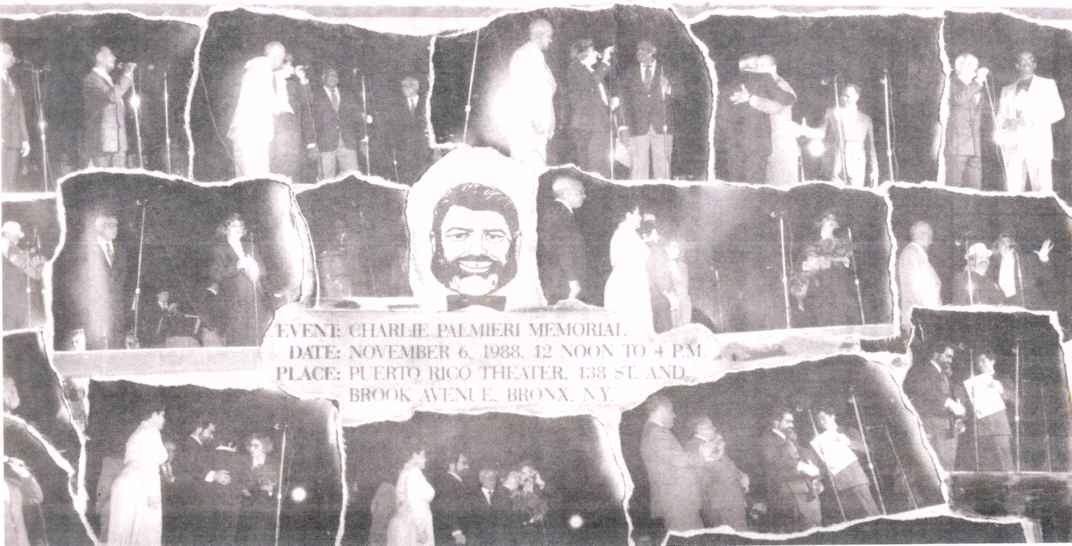 EVENT: CHARLIE PALMIERI MEMORIAL
DATE: NOVEMBER 6, 1988, 12 NOON TO 4 P.M.
PLACE: PUERTO RICO THEATER, 138 ST. AND
BROOK AVENUE, BRONX, N.Y.